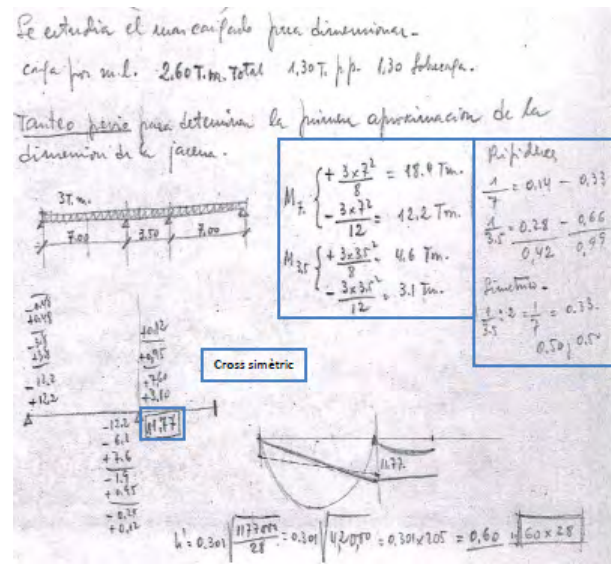 Se estudia el mas cargado para dimensionar.
carga por m.l. 2,60 T.m. Total 1,30 T. p.p. 1,30 sobrecarga.
Tanteo previo para determinar la primera aproximacion de la
dimension de la jacena.
3T.m.
7.00 3.50 7.00
M7. + 3x7²/8 = 18.4 Tm.
- 3x7²/12 = 12.2 Tm.
M3,5 + 3x3,5²/8 = 4.6 Tm.
- 3x3,5²/12 = 3.1 Tm.
Rigideces
1/7 = 0.14 - 0,33
1/3.5 = 0.28 - 0,66
0,42 0,99
Simetrico.
1/3.5 : 2 = 1/7 = 0.33.
0.50 y 0.50
+0,48
-3,8
+3,8
-12,2
+12,2
+0,12
+0,95
+7,60
+3,10
Cross simètric
-12.2
-6.1
+7.6
-1.9
+0.95
-0.25
+0,12
11,77
11.77.
h' = 0.301 √1177000/28 = 0.301 √42000 = 0.301x205 = 0,60 60 x 28